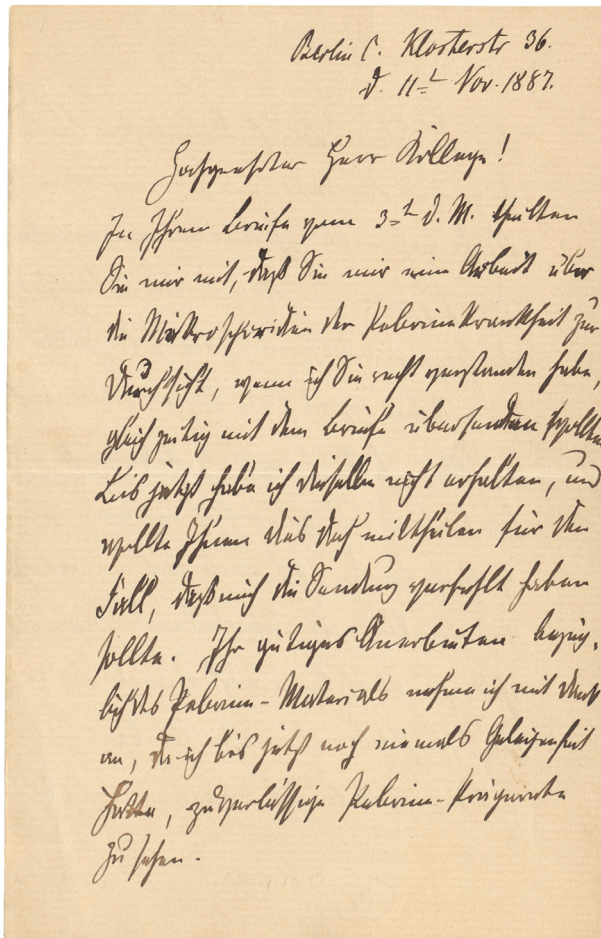 Berlin C. Klosterstr 36.
d. 11t Nov. 1887.
Hochgeehrter Herr Kollege!
In Ihrem Briefe vom 3t d. M. theilten
Sie mir mit, daß Sie mir eine Arbeit über
die der Pebrinekrankheit zur
Durchsicht, wenn ich Sie recht verstanden habe,
gleichzeitig mit dem Briefe übersenden wollten
Bis jetzt habe ich dieselbe nicht erhalten, und
wollte Ihnen dies doch mittheilen für den
Fall, daß mich die Sendung verfehlt haben
sollte. Ihr gütiges Anerbieten bezüg-
lich des Pebrine-Materials nehme ich mit Dank
an, da ich bis jetzt noch niemals Gelegenheit
hatte, zuverlässige Pebrine-Präparate
zu sehen.